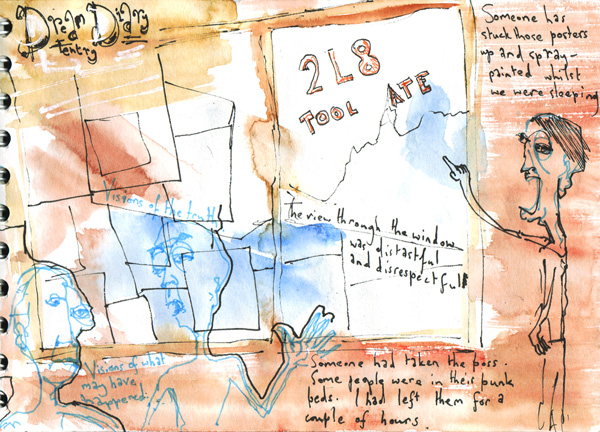 Dream Diary
entry
Someone has
stuck those posters
up and spray-
painted whilst
we were sleeping
2L8
TOOL ATE
Visions of the truth
The view through the window
was distastful
and disrespectfull
Visions of what
may have
happened...
Someone had taken the poss.
Some people were in their punk
beds. I had left them for a
couple of hours.